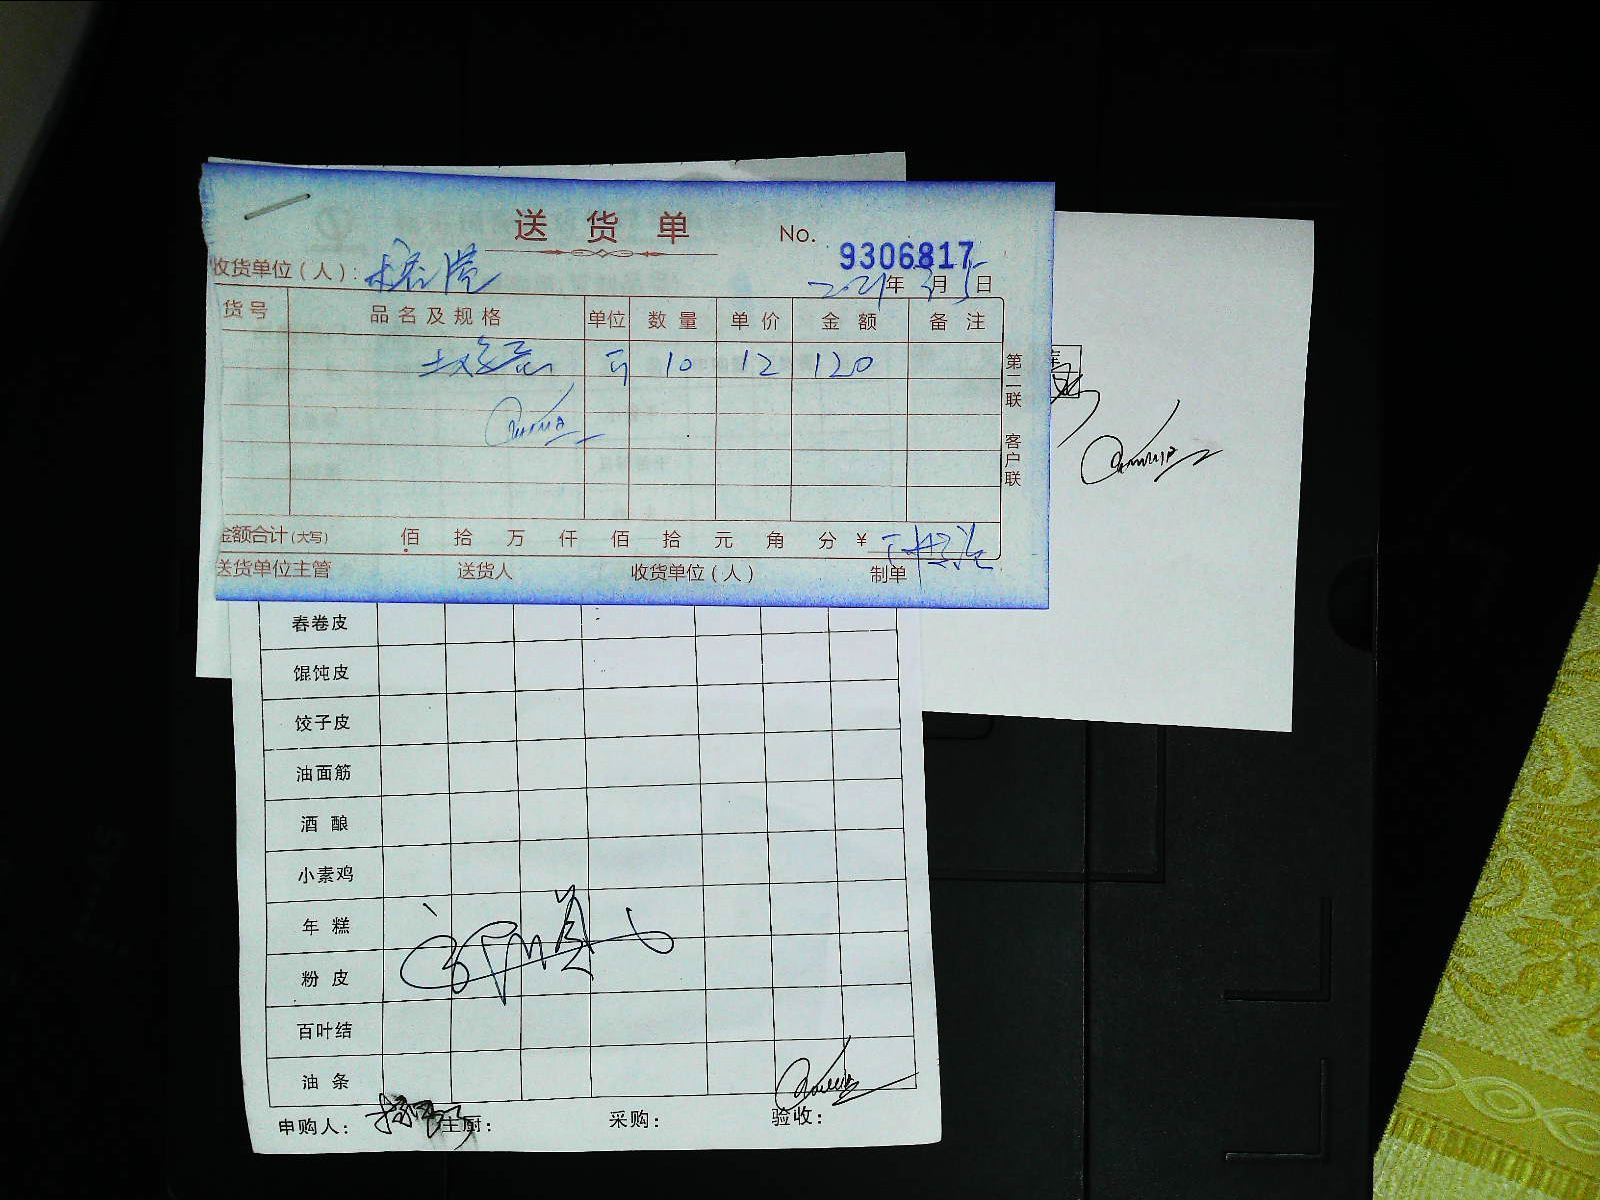 送货单 No. 9306817
收货单位(人):
2021年3月5日
货号 品名及规格 单位 数量 单价 金额 备注
10 12 120
第二联 客户联
金额合计(大写) 佰 拾 万 仟 佰 拾 元 角 分 ¥
送货单位主管 送货人 收货单位(人) 制单
春卷皮
馄饨皮
饺子皮
油面筋
酒酿
小素鸡
年糕
粉皮
百叶结
油条
申购人: 主厨: 采购: 验收: